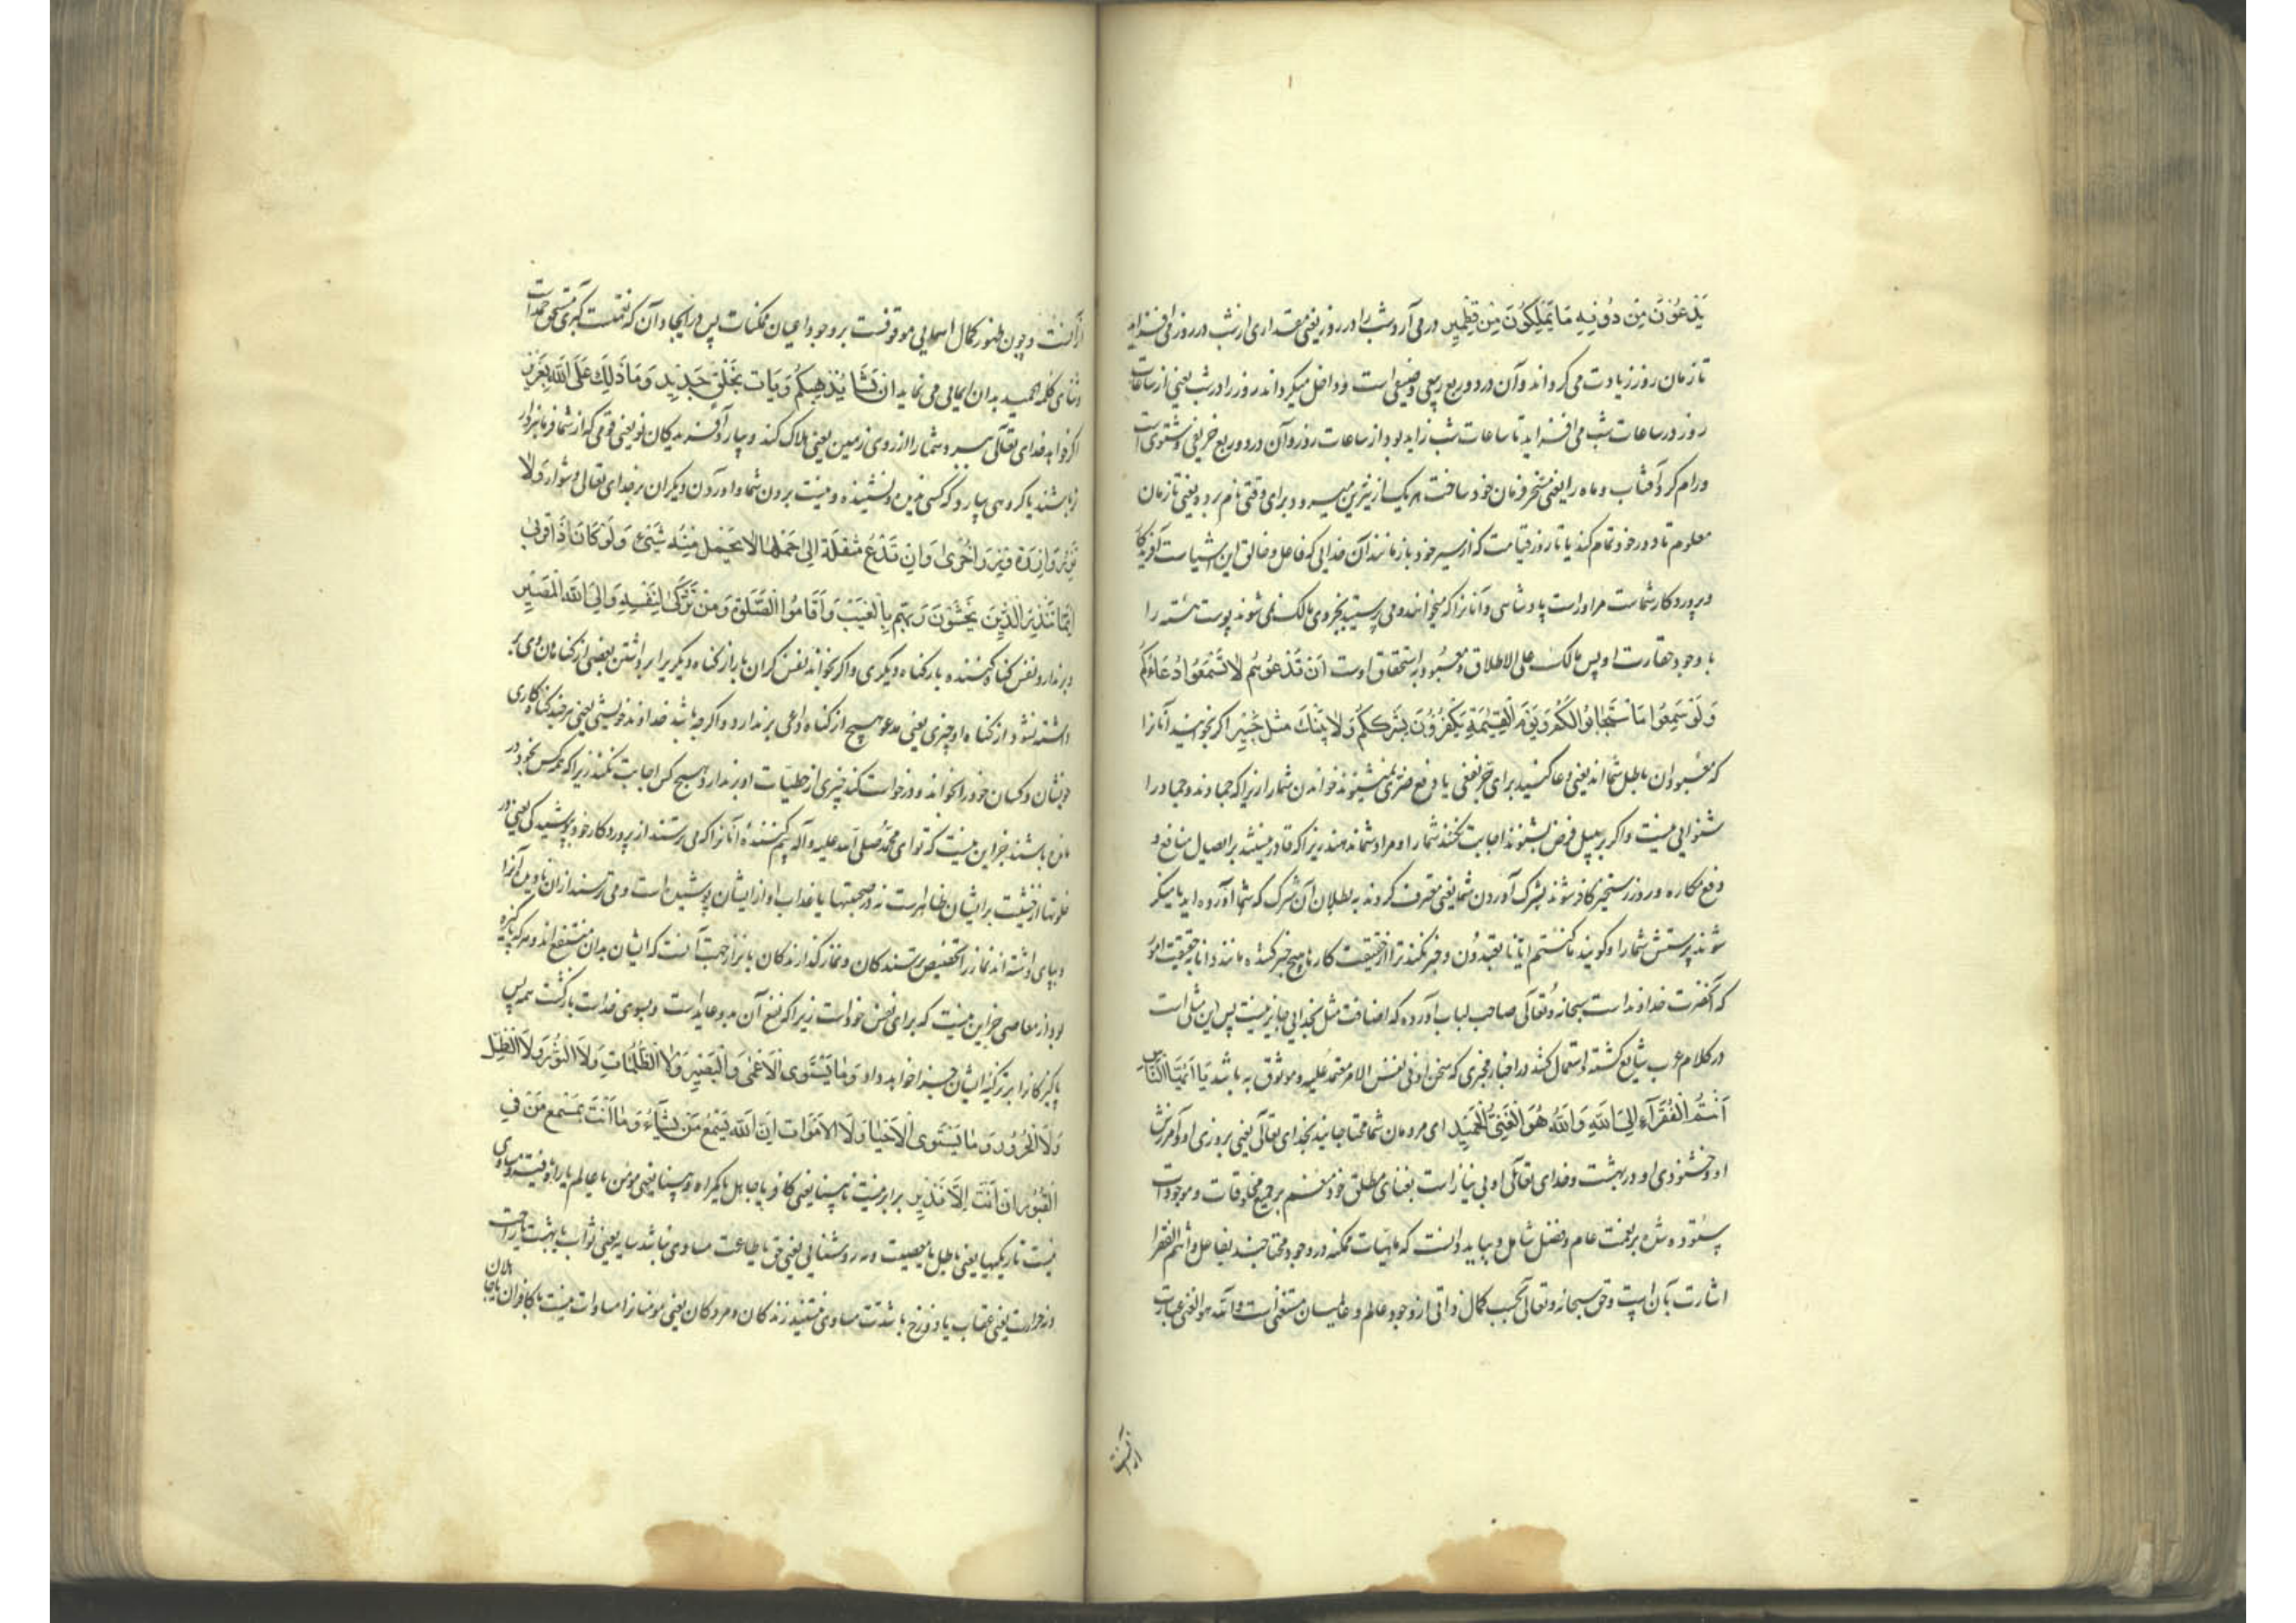 یَدْعُوْنَ مِنْ دُوْنِهِ مَا یَمْلِکُوْنَ مِنْ قِطْمِیْرٍ در می آرد شب را در روز یعنی مقداری از شب در روز می افزاید
تا زمان روز زیادت می گرداند و آن در دو ربع ربیعی و صیفی است و داخل میکرداند روز را در شب یعنی از ساعات
روز در ساعات شب می افزاید تا ساعات شب زاید بود از ساعات روز و آن در دو ربع خریفی و شتوی است
و رام کرد آفتاب و ماه را یعنی مسخر فرمان خود ساخت هر یک از نیّرین میرود برای وقتی نام برده یعنی تا زمان
معلوم تا دور خود تمام کند یا تا روز قیامت که از سیر خود باز مانند آن خدایی که فاعل و خالق این اشیاست آفریدکار
و پروردکار شماست مر او راست پادشاهی و آنانرا که میخوانند و می پرستید بجز وی مالک نمی شوند پوست هسته را
با وجود حقارت او پس مالک علی الاطلاق و معبود به استحقاق اوست اَنْ تَدْعُوْهُم لَا تَسْمَعُوا دُعَاءَکُم
وَ لَوْ سَمِعُوا مَا اسْتَجَابُوا لَکُمْ وَ یَوْمَ الْقِیٰمَةِ یَکْفُرُوْنَ بِشِرْکِکُمْ وَ لَا یُنَبِّئُکَ مِثْلُ خَبِیْرٍ اکر بخوانید آنانرا
که معبودان باطل شما اند یعنی دعا کنید برای جر نفعی یا دفع ضرری نمیشنوند خواندن شما را زیرا که جماد اند و جماد را
شنوایی نیست و اکر بر سبیل فرض بشنوند اجابت نکنند شما را و مراد شما ندهند زیرا که قادر نیستند بر ایصال منافع و
دفع مکاره و روز رستخیز کافر شوند بشرک آوردن شما یعنی معترف کردند به بطلان آن شرک که شما آورده اید یا منکر
شوند پرستش شما را و کویند ما کنتم ایانا تعبدون و خبر نکند ترا از حقیقت کارها هیچ خبر کننده مانند دانا بحقیقت امور
که آنحضرت خداوند است سبحانه و تعالی صاحب لباب آورده که اضافت مثل بخدایی جایز نیست پس این مثلی است
در کلام عرب شایع کشته و استعمال کنند در اخبار مخبری که سخن او فی نفس الامر معتمد علیه و موثوق به باشد یَا اَیُّهَا النَّاسُ
اَنْتُمُ الْفُقَرَآءُ اِلَی اللّٰهِ وَ اللّٰهُ هُوَ الْغَنِیُّ الْحَمِیْدِ ای مردمان شما محتاجانید بخدای تعالی یعنی بروزی او و آمرزش
او و خشنودی او در بهشت و خدای تعالی او بی نیاز است بغنای مطلق خود منعم بر جمیع مخلوقات و موجودات
ستوده شده بر نعمت عام و فضل شامل و بباید دانست که ماهیات ممکنه در وجود محتاجند بفاعل و انتم الفقرا
اشارت بآن است و حق سبحانه و تعالی بحسب کمال ذاتی از وجود عالم و عالمیان مستغنی است و اللّٰه هو الغنی عبارت
از آنست
از آنست و چون ظهور کمال اسمایی موقوفست بر وجود اعیان ممکنات پس در ایجاد آن که نعمتست کبری مستحق حمد است
و ثنای کلمه الحمید بدان ایمایی می نماید اِن یَشَا یُذْهِبْکُم وَ یَاتِ بِخَلْقٍ جَدِیْدٍ وَ مَا ذٰلِکَ عَلَی اللّٰهِ بِعَزِیْزٍ
اکر خواهد خدای تعالی ببرد شما را از روی زمین یعنی هلاک کند و بیارد آفریدکان نو یعنی قومی که از شما فرمانبردار
تر باشند یا کروهی بیارد که کسی ندیده و نشنیده و نیست بردن شما و آوردن دیکران بر خدای تعالی دشوار وَ لَا
تَزِرُ وَازِرَةٌ وِزْرَ اُخْرٰی وَ اِنْ تَدْعُ مُثْقَلَةٌ اِلٰی حِمْلِهَا لَا یُحْمَلْ مِنْهُ شَیْءٌ وَ لَوْ کَانَ ذَا قُرْبٰی
اِنَّمَا تُنْذِرُ الَّذِیْنَ یَخْشَوْنَ رَبَّهُمْ بِالْغَیْبِ وَ اَقَامُوا الصَّلٰوةَ وَ مَنْ تَزَکّٰی لِنَفْسِهِ وَ اِلَی اللّٰهِ الْمَصِیْرِ
و برندارد نفس کناه کننده بار کناه دیکری و اکر بخواند نفس کران بار از کناه دیکریرا برداشتن بعضی از کناهان وی بر
داشته نشود از کناه او چیزی یعنی مدعو هیچ از کناه داعی برندارد و اکر چه باشد خداوند خویشی یعنی هر چند کناه کاری
خویشان و کسان خود را بخواند و درخواست کند چیزی از خطیات او بردارند هیچ کس اجابت نکند زیرا که هر کس بخود در
مانده باشند جز این نیست که تو ای محمد صلی اللّٰه علیه و آله بیم کنندهٔ آنانرا که می ترسند از پروردکار خود بپوشیدکی یعنی در
خلوتها از خشیت بر ایشان ظاهرست نه در صحبتها یا عذاب او از ایشان پوشیده است و می ترسند از آن نادیده آنرا
و بپای داشته اند نماز را تخصیص ترسندکان و نماز کذارندکان بانذار جهت آنست که ایشان بدان منتفع اند و هر که پاکیزه
بود از معاصی جز این نیست که برای نفس خود است زیرا که نفع آن بدو عاید است و بسوی خداست بازکشت همه پس
پاکیزکانرا بر تزکیه ایشان جزا خواهد داد وَ مَا یَسْتَوِی الْاَعْمٰی وَ الْبَصِیْرُ وَ لَا الظُّلُمَاتِ وَ لَا النُّوْرُ وَ لَا الظِّلُّ
وَ لَا الْحَرُوْرُ وَ مَا یَسْتَوِی الْاَحْیَا وَ لَا الْاَمْوَاتُ اِنَّ اللّٰهَ یُسْمِعُ مَنْ یَشَآءُ وَ مَا اَنْتَ بِمُسْمِعٍ مَنْ فِی
الْقُبُوْرِ اِنْ اَنْتَ اِلَّا نَذِیْرٌ برابر نیست نابینا یعنی کافر یا جاهل یا کمراه و بینا یعنی مومن یا عالم یا راه یافته و مساوی
نیست تاریکیها یعنی باطل یا معصیت و نه روشنایی یعنی حق یا طاعت مساوی نباشد سایه یعنی ثواب یا بهشت یا راحت
و نه حرارت یعنی عقاب یا دوزخ یا شدت مساوی نیستند زندکان و مردکان یعنی مومنانرا مساوات نیست با کافران یا جاهلان